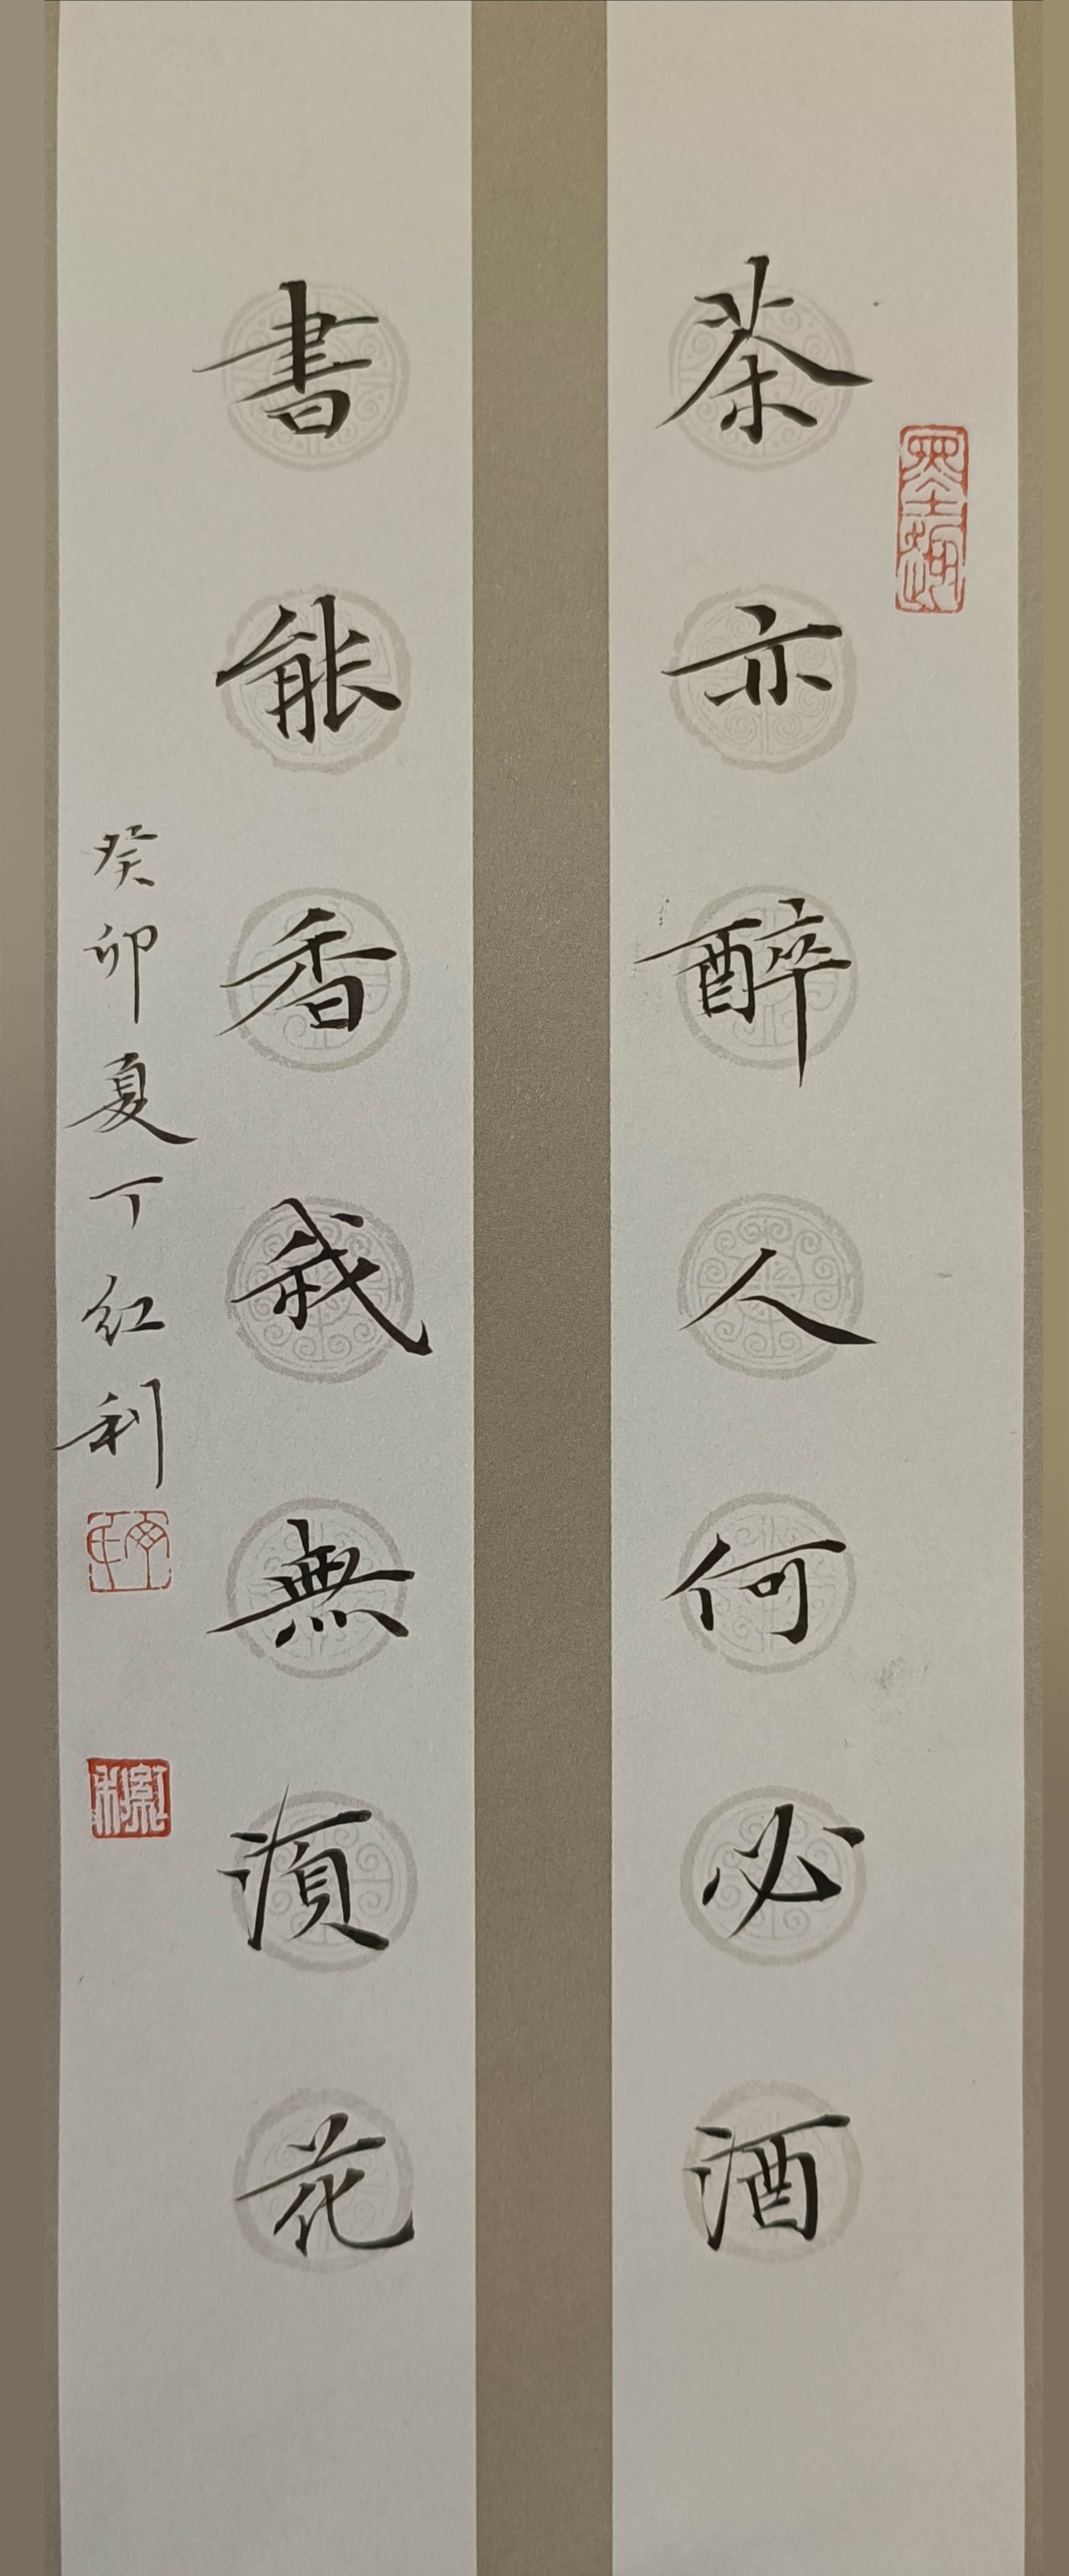 茶亦醉人何必酒
書能香我無須花
癸卯夏丁紅利
墨趣